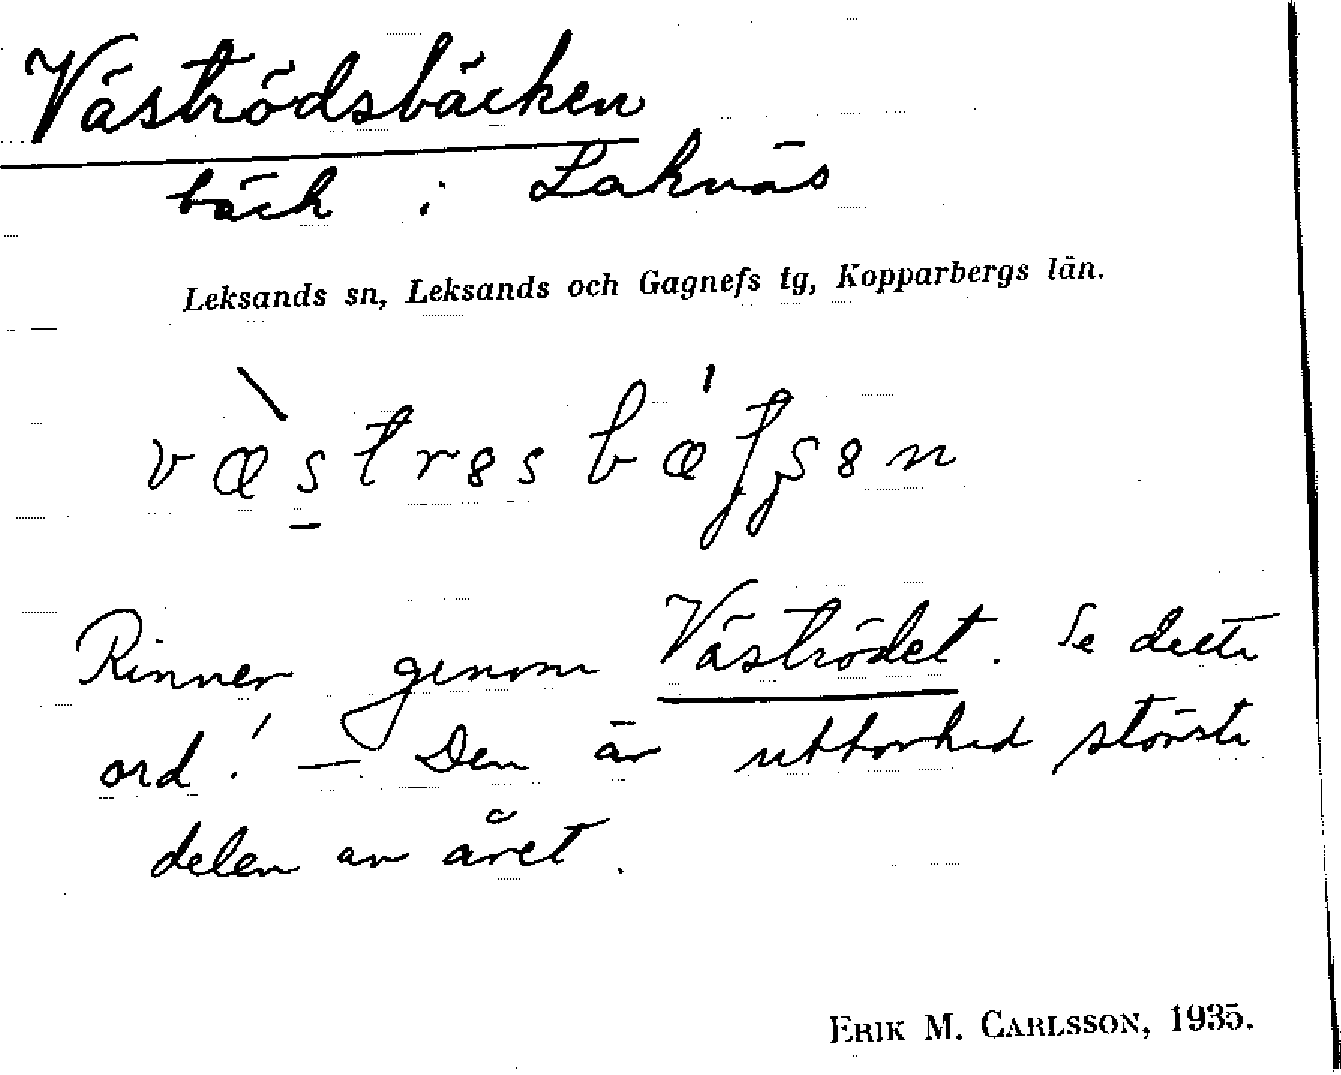 Väströdsbäcken
bäck i Laknäs
Leksands sn, Leksands och Gagnefs tg, Kopparbergs län.
Rinner genom Väströdet. Se detta
ord! — Den är uttorkad största
delen av året.
ERIK M. CARLSSON, 1935.